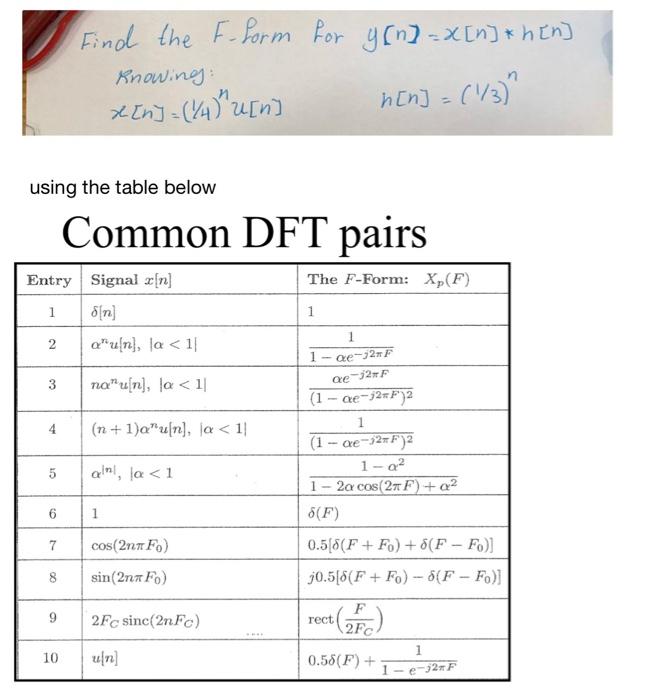 Find the F-form for y[n] = x[n] * h[n]
Knowing:
x[n] = (1/4)^n u[n] h[n] = (1/3)^n
using the table below
Common DFT pairs
Entry Signal x[n] The F-Form: X_p(F)
1 δ[n] 1
2 αⁿu[n], |α < 1| 1/(1 − αe^{−j2πF})
3 nαⁿu[n], |α < 1| αe^{−j2πF}/(1 − αe^{−j2πF})²
4 (n + 1)αⁿu[n], |α < 1| 1/(1 − αe^{−j2πF})²
5 α^{|n|}, |α < 1 (1 − α²)/(1 − 2α cos(2πF) + α²)
6 1 δ(F)
7 cos(2nπF₀) 0.5[δ(F + F₀) + δ(F − F₀)]
8 sin(2nπF₀) j0.5[δ(F + F₀) − δ(F − F₀)]
9 2F_C sinc(2nF_C) rect(F/2F_C)
10 u[n] 0.5δ(F) + 1/(1 − e^{−j2πF})